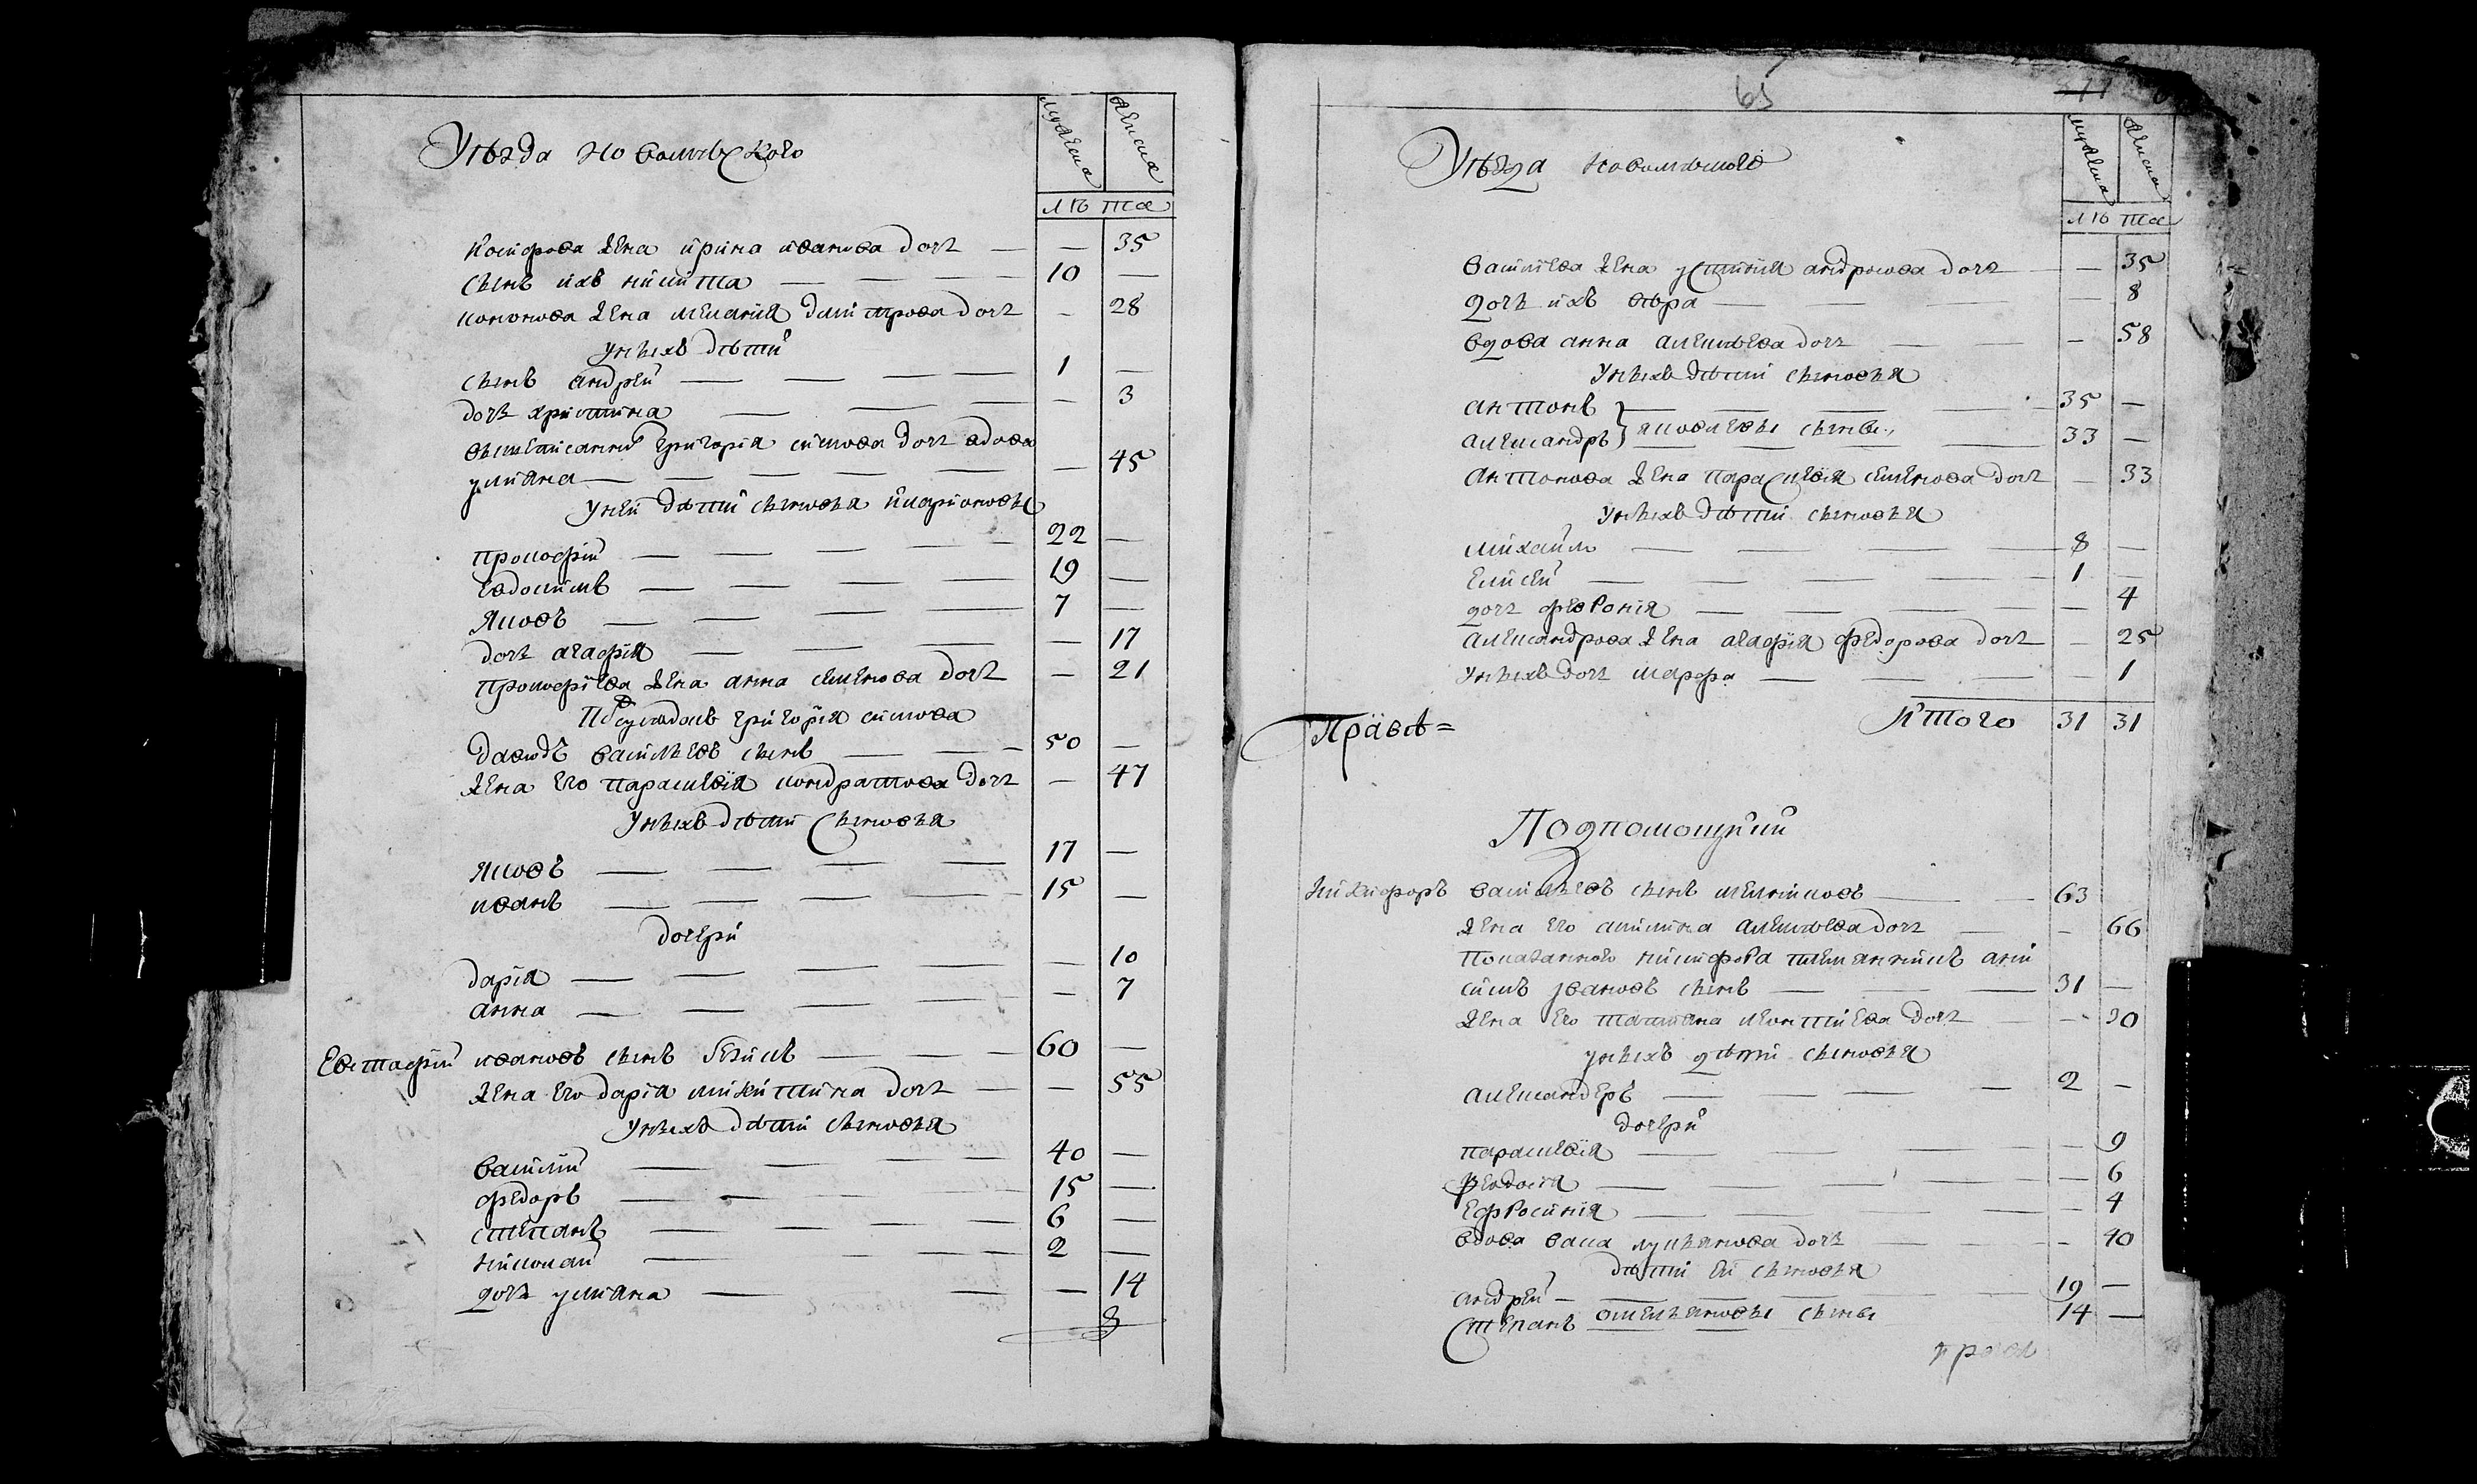 Уѣзда Новомлѣцкого
мужеска
женска
лѣ та
Кондрова жена ирина иванова дочь — — 35
сынъ ихъ никита — 10 —
кононова жена меланія дмитрова дочь — 28
У ныхъ дѣти
сынъ андрей — 1 —
дочь христина — — 3
вышеписаннй григорія сикова дочь вдова
уліяна — — 45
У ней дѣти сыновья иларіоновы
прокофій — 22 —
Евдокимъ — 19 —
Яковъ — 7 —
дочь агафія — — 17
Прокофіева жена анна семенова дочь — 21
Подсуседокъ григорія сикова
давыдъ васильевъ сынъ — 50 —
жена его параскевія кондратова дочь — 47
У ныхъ дѣти сыновья
Яковъ — 17 —
иванъ — 15 —
дочери
дарія — — 10
анна — — 7
Евстафій ивановъ сынъ — 60 —
жена его дарія никитина дочь — 55
У ныхъ дѣти сыновья
василій — 40 —
федоръ — 15 —
степанъ — 6 —
николай — 2 —
дочь уліяна — — 14
65
Уѣзда Новомлѣцкого
мужеска
женска
лѣ та
васильева жена устинія андронова дочь — 35
дочь ихъ вѣра — — 8
вдова анна алексѣева дочь — — 58
У ныхъ дѣти сыновья
антонъ — 35 —
александръ } яковлевы сыны — 33 —
Антонова жена параскевія семенова дочь — 33
У ныхъ дѣти сыновья
михайло — 8 —
Елисей — 1 —
дочь февронія — — 4
александрова жена агафія федорова дочь — 25
У ныхъ дочь марфа — — 1
Итого 31 31
Правѣ =
Подпомощики
Никифоръ васильевъ сынъ мелниковъ — 63
жена его акилина алексѣева дочь — — 66
Показанного никифора племянникъ ани
симъ ивановъ сынъ — 31 —
жена его татияна леонтиева дочь — — 30
у ныхъ дѣти сыновья
александеръ — 2 —
дочери
параскевія — — 9
феодосія — — 6
Ефросинія — — 4
вдова васа лукьянова дочь — — 40
дѣти ей сыновья
андрей — 19 —
степанъ омельяновы сыны 14 —